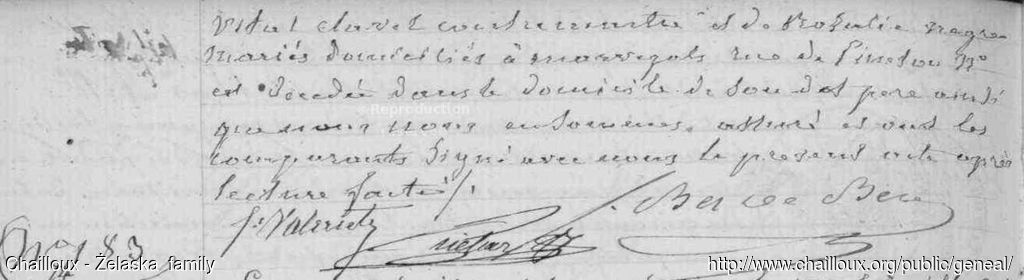 Vital clavel contremaitre et de Rozalie nègre
Mariés domiciliés à marvejols rue de Pineton n°
est décédé dans le domicile de son dit père ainsi
que nous nous en sommes assuré et ont les
comparants signé avec nous le présent acte après
lecture faite
© Reproduction
N° 183
Chailloux - Żelaska family
http://www.chailloux.org/public/geneal/